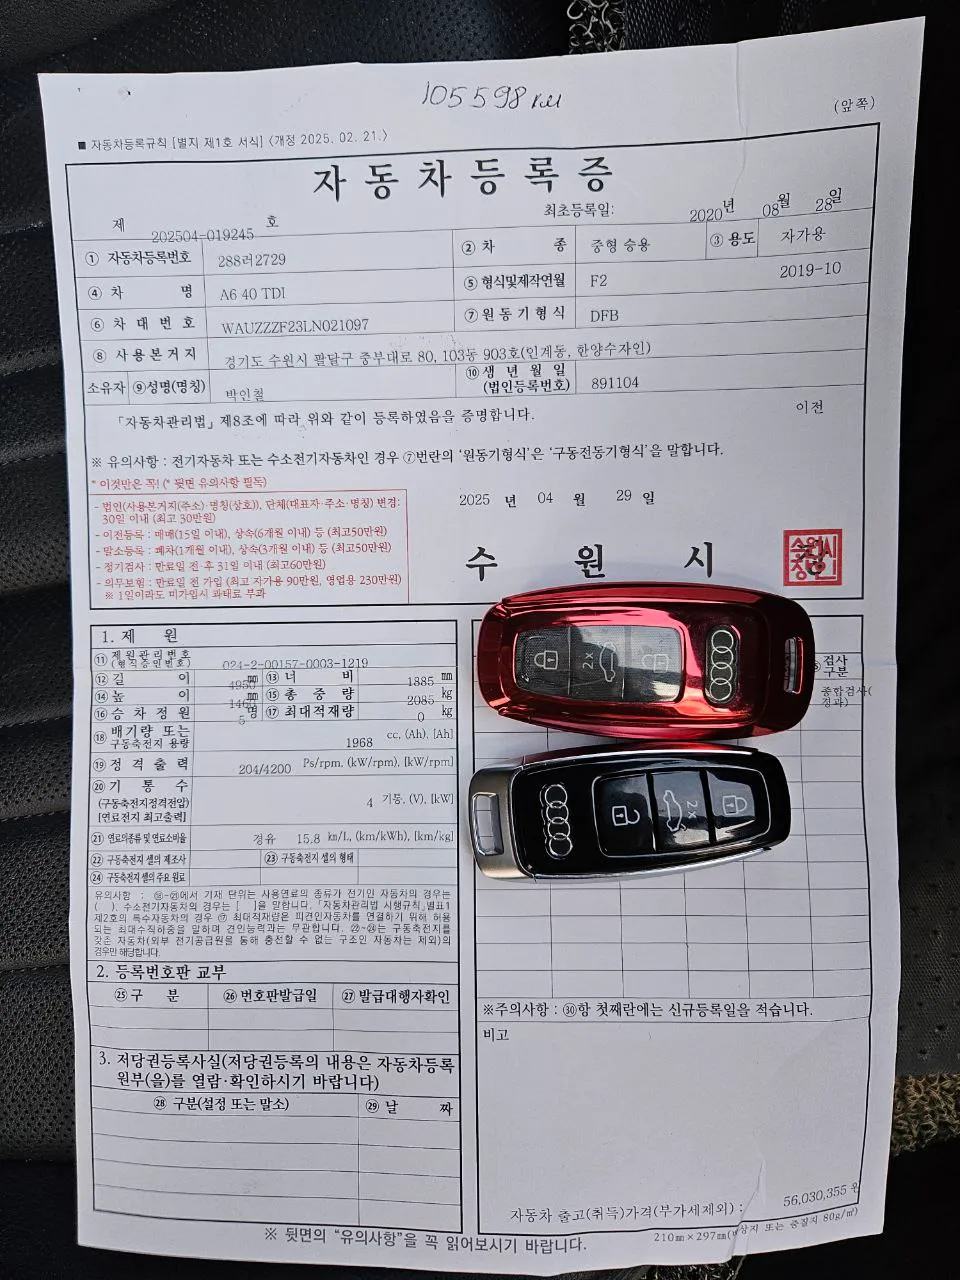 105 598 км
(앞쪽)
■ 자동차등록규칙 [별지 제1호 서식] <개정 2025. 02. 21.>
자동차등록증
제 202504-019245 호
최초등록일: 2020년 08월 28일
① 자동차등록번호 288러2729 ② 차 종 중형 승용 ③ 용도 자가용
④ 차 명 A6 40 TDI ⑤ 형식및제작연월 F2 2019-10
⑥ 차 대 번 호 WAUZZZF23LN021097 ⑦ 원동기형식 DFB
⑧ 사용본거지 경기도 수원시 팔달구 중부대로 80, 103동 903호(인계동, 한양수자인)
소유자 ⑨성명(명칭) 박인철 ⑩ 생 년 월 일 (법인등록번호) 891104
「자동차관리법」 제8조에 따라 위와 같이 등록하였음을 증명합니다.
이전
※ 유의사항 : 전기자동차 또는 수소전기자동차인 경우 ⑦번란의 '원동기형식'은 '구동전동기형식'을 말합니다.
* 이것만은 꼭! (* 뒷면 유의사항 필독)
- 법인(사용본거지(주소)·명칭(상호)), 단체(대표자·주소·명칭) 변경:
30일 이내 (최고 30만원)
- 이전등록 : 매매(15일 이내), 상속(6개월 이내) 등 (최고50만원)
- 말소등록 : 폐차(1개월 이내), 상속(3개월 이내) 등 (최고50만원)
- 정기검사 : 만료일 전·후 31일 이내 (최고60만원)
- 의무보험 : 만료일 전 가입 (최고 자가용 90만원, 영업용 230만원)
※ 1일이라도 미가입시 과태료 부과
2025 년 04 월 29 일
수 원 시
1. 제 원
⑪ 제원관리번호 (형식승인번호) 024-2-00157-0003-1219
⑫ 길 이 mm ⑬ 너 비 1885 mm
⑭ 높 이 mm ⑮ 총 중 량 2085 kg
⑯ 승 차 정 원 5 명 ⑰ 최대적재량 0 kg
⑱ 배기량 또는 구동축전지 용량 1968 cc, (Ah), [Ah]
⑲ 정 격 출 력 204/4200 Ps/rpm, (kW/rpm), [kW/rpm]
⑳ 기 통 수
(구동축전지정격전압)
[연료전지 최고출력]
4 기통, (V), [kW]
㉑ 연료의종류 및 연료소비율 경유 15.8 km/L, (km/kWh), [km/kg]
㉒ 구동축전지 셀의 제조사 ㉓ 구동축전지 셀의 형태
㉔ 구동축전지 셀의 주요 원료
유의사항 : ⑱~㉑에서 기재 단위는 사용연료의 종류가 전기인 자동차의 경우는
( ), 수소전기자동차의 경우는 [ ]을 말합니다. 「자동차관리법 시행규칙」별표1
제2호의 특수자동차의 경우 ⑰ 최대적재량은 피견인자동차를 연결하기 위해 허용
되는 최대수직하중을 말하며 견인능력과는 무관합니다. ㉒~㉔는 구동축전지를
갖춘 자동차(외부 전기공급원을 통해 충전할 수 없는 구조인 자동차는 제외)의
경우만 해당합니다.
2. 등록번호판 교부
㉕ 구 분 ㉖ 번호판발급일 ㉗ 발급대행자확인
3. 저당권등록사실(저당권등록의 내용은 자동차등록
원부(을)를 열람·확인하시기 바랍니다)
㉘ 구분(설정 또는 말소) ㉙ 날 짜
검사
구분
종합검사(
2x
2x
※주의사항 : ㉚항 첫째란에는 신규등록일을 적습니다.
비고
자동차 출고(취득)가격(부가세제외) : 56,030,355 원
※ 뒷면의 "유의사항"을 꼭 읽어보시기 바랍니다.
210㎜×297㎜ 또는 중질지 80g/㎡)